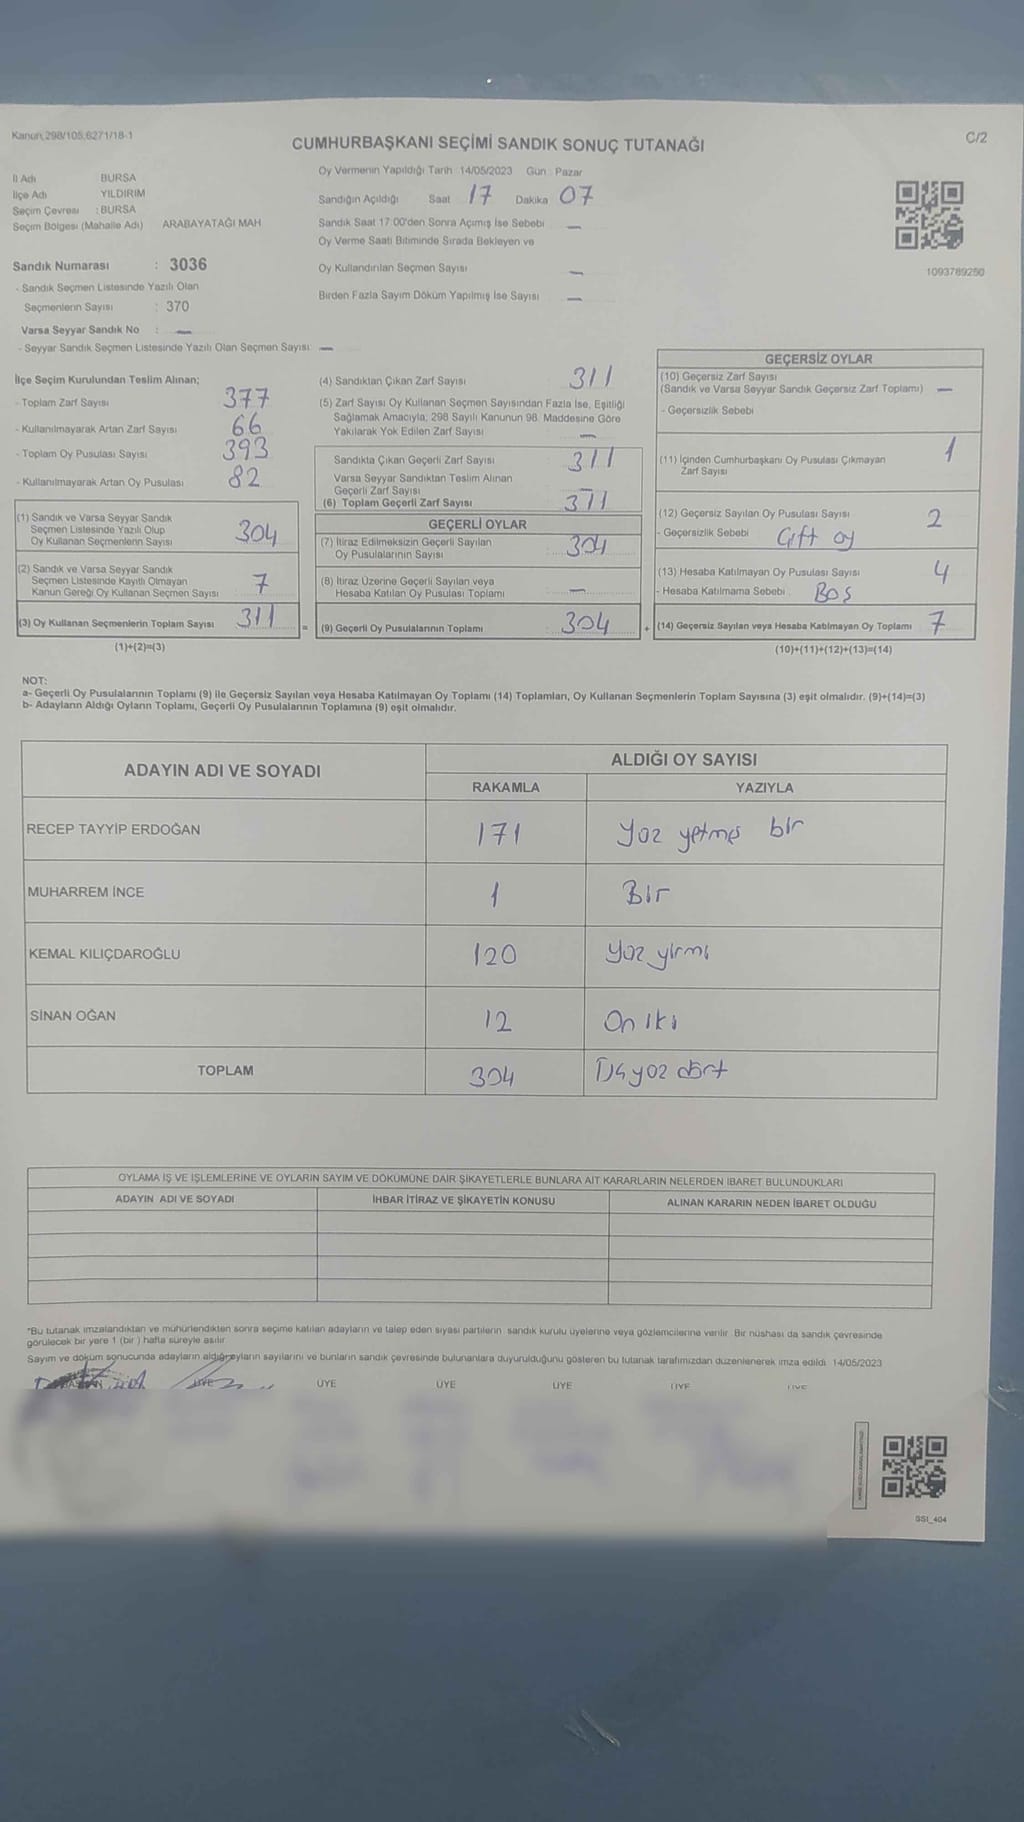 Kanun,298/105,6271/18-1
CUMHURBAŞKANI SEÇİMİ SANDIK SONUÇ TUTANAĞI
C/2
İl Adı BURSA
İlçe Adı YILDIRIM
Seçim Çevresi : BURSA
Seçim Bölgesi (Mahalle Adı) ARABAYATAĞI MAH
Sandık Numarası : 3036
- Sandık Seçmen Listesinde Yazılı Olan
Seçmenlerin Sayısı : 370
Varsa Seyyar Sandık No : —
- Seyyar Sandık Seçmen Listesinde Yazılı Olan Seçmen Sayısı: —
Oy Vermenin Yapıldığı Tarih 14/05/2023 Gün Pazar
Sandığın Açıldığı Saat 17 Dakika 07
Sandık Saat 17:00'den Sonra Açımış İse Sebebi —
Oy Verme Saati Bitiminde Sırada Bekleyen ve
Oy Kullandırılan Seçmen Sayısı —
Birden Fazla Sayım Döküm Yapılmış İse Sayısı —
1093789250
İlçe Seçim Kurulundan Teslim Alınan;
- Toplam Zarf Sayısı 377
- Kullanılmayarak Artan Zarf Sayısı 66
- Toplam Oy Pusulası Sayısı 393
- Kullanılmayarak Artan Oy Pusulası 82
(1) Sandık ve Varsa Seyyar Sandık
Seçmen Listesinde Yazılı Olup
Oy Kullanan Seçmenlerin Sayısı 304
(2) Sandık ve Varsa Seyyar Sandık
Seçmen Listesinde Kayıtlı Olmayan
Kanun Gereği Oy Kullanan Seçmen Sayısı 7
(3) Oy Kullanan Seçmenlerin Toplam Sayısı 311
(1)+(2)=(3)
(4) Sandıktan Çıkan Zarf Sayısı 311
(5) Zarf Sayısı Oy Kullanan Seçmen Sayısından Fazla İse, Eşitliği
Sağlamak Amacıyla, 298 Sayılı Kanunun 98. Maddesine Göre
Yakılarak Yok Edilen Zarf Sayısı —
Sandıkta Çıkan Geçerli Zarf Sayısı 311
Varsa Seyyar Sandıktan Teslim Alınan
Geçerli Zarf Sayısı —
(6) Toplam Geçerli Zarf Sayısı 311
GEÇERLİ OYLAR
(7) İtiraz Edilmeksizin Geçerli Sayılan
Oy Pusulalarının Sayısı 304
(8) İtiraz Üzerine Geçerli Sayılan veya
Hesaba Katılan Oy Pusulası Toplamı —
= (9) Geçerli Oy Pusulalarının Toplamı 304
GEÇERSİZ OYLAR
(10) Geçersiz Zarf Sayısı
(Sandık ve Varsa Seyyar Sandık Geçersiz Zarf Toplamı) —
- Geçersizlik Sebebi
(11) İçinden Cumhurbaşkanı Oy Pusulası Çıkmayan
Zarf Sayısı 1
(12) Geçersiz Sayılan Oy Pusulası Sayısı 2
- Geçersizlik Sebebi Çift oy
(13) Hesaba Katılmayan Oy Pusulası Sayısı 4
- Hesaba Katılmama Sebebi Boş
+ (14) Geçersiz Sayılan veya Hesaba Katılmayan Oy Toplamı 7
(10)+(11)+(12)+(13)=(14)
NOT:
a- Geçerli Oy Pusulalarının Toplamı (9) ile Geçersiz Sayılan veya Hesaba Katılmayan Oy Toplamı (14) Toplamları, Oy Kullanan Seçmenlerin Toplam Sayısına (3) eşit olmalıdır. (9)+(14)=(3)
b- Adayların Aldığı Oyların Toplamı, Geçerli Oy Pusulalarının Toplamına (9) eşit olmalıdır.
ADAYIN ADI VE SOYADI ALDIĞI OY SAYISI
RAKAMLA YAZIYLA
RECEP TAYYİP ERDOĞAN 171 Yüz yetmiş bir
MUHARREM İNCE 1 Bir
KEMAL KILIÇDAROĞLU 120 Yüz yirmi
SİNAN OĞAN 12 On iki
TOPLAM 304 Üç yüz dört
OYLAMA İŞ VE İŞLEMLERİNE VE OYLARIN SAYIM VE DÖKÜMÜNE DAİR ŞİKAYETLERLE BUNLARA AİT KARARLARIN NELERDEN İBARET BULUNDUKLARI
ADAYIN ADI VE SOYADI İHBAR İTİRAZ VE ŞİKAYETİN KONUSU ALINAN KARARIN NEDEN İBARET OLDUĞU
*Bu tutanak imzalandıktan ve mühürlendikten sonra seçime katılan adayların ve talep eden siyasi partilerin sandık kurulu üyelerine veya gözlemcilerine verilir. Bir nüshası da sandık çevresinde
görülecek bir yere 1 (bir ) hafta süreyle asılır
Sayım ve döküm sonucunda adayların aldığı oyların sayılarını ve bunların sandık çevresinde bulunanlara duyurulduğunu gösteren bu tutanak tarafımızdan düzenlenerek imza edildi. 14/05/2023
BAŞKAN ÜYE ÜYE ÜYE ÜYE ÜYE ÜYE
SSI_404